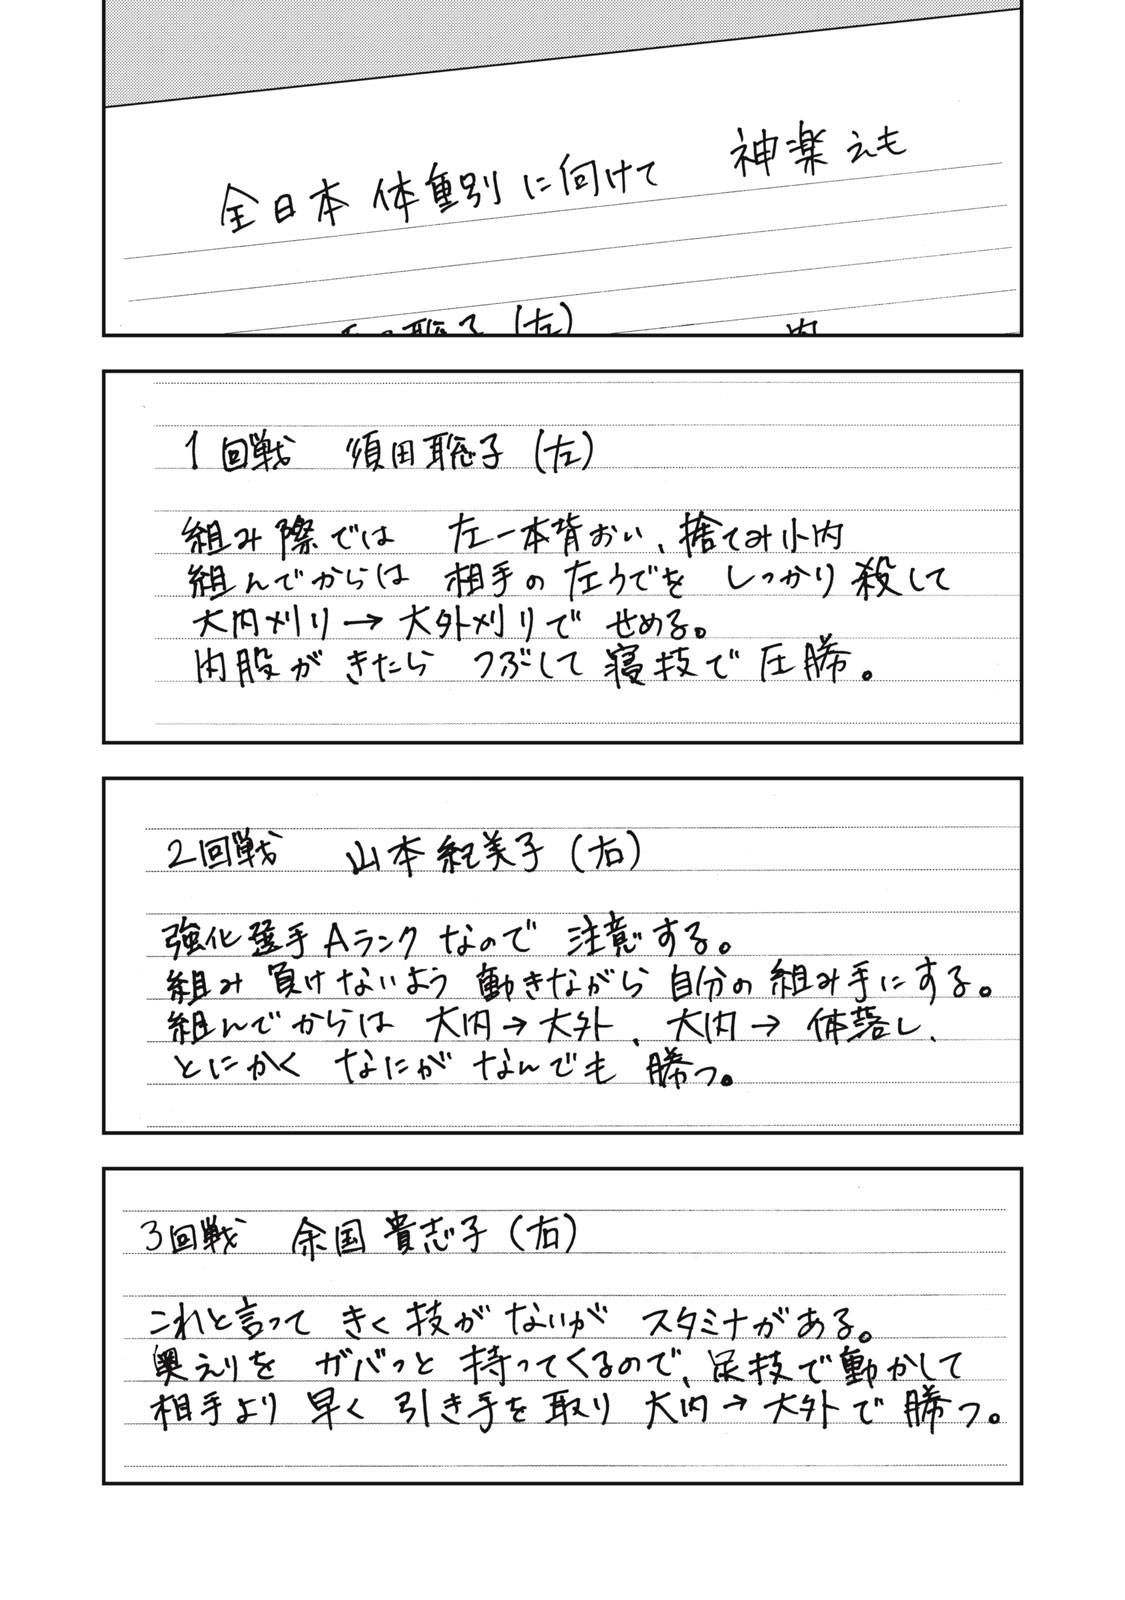 全日本 体重別に向けて 神楽えも
聡子(左) 内
1回戦 須田聡子(左)
組み際では 左一本背おい、捨てみ小内
組んでからは 相手の左うでを しっかり殺して
大内刈り→大外刈りで せめる。
内股がきたら つぶして寝技で圧勝。
2回戦 山本紀美子(右)
強化選手Aランクなので 注意する。
組み負けないよう 動きながら 自分の組み手にする。
組んでからは 大内→大外、大内→体落し、
とにかく なにがなんでも 勝つ。
3回戦 余国貴志子(右)
これと言って きく技がないが スタミナがある。
奥えりを ガバっと 持ってくるので、足技で動かして
相手より 早く 引き手を取り 大内→大外で 勝つ。